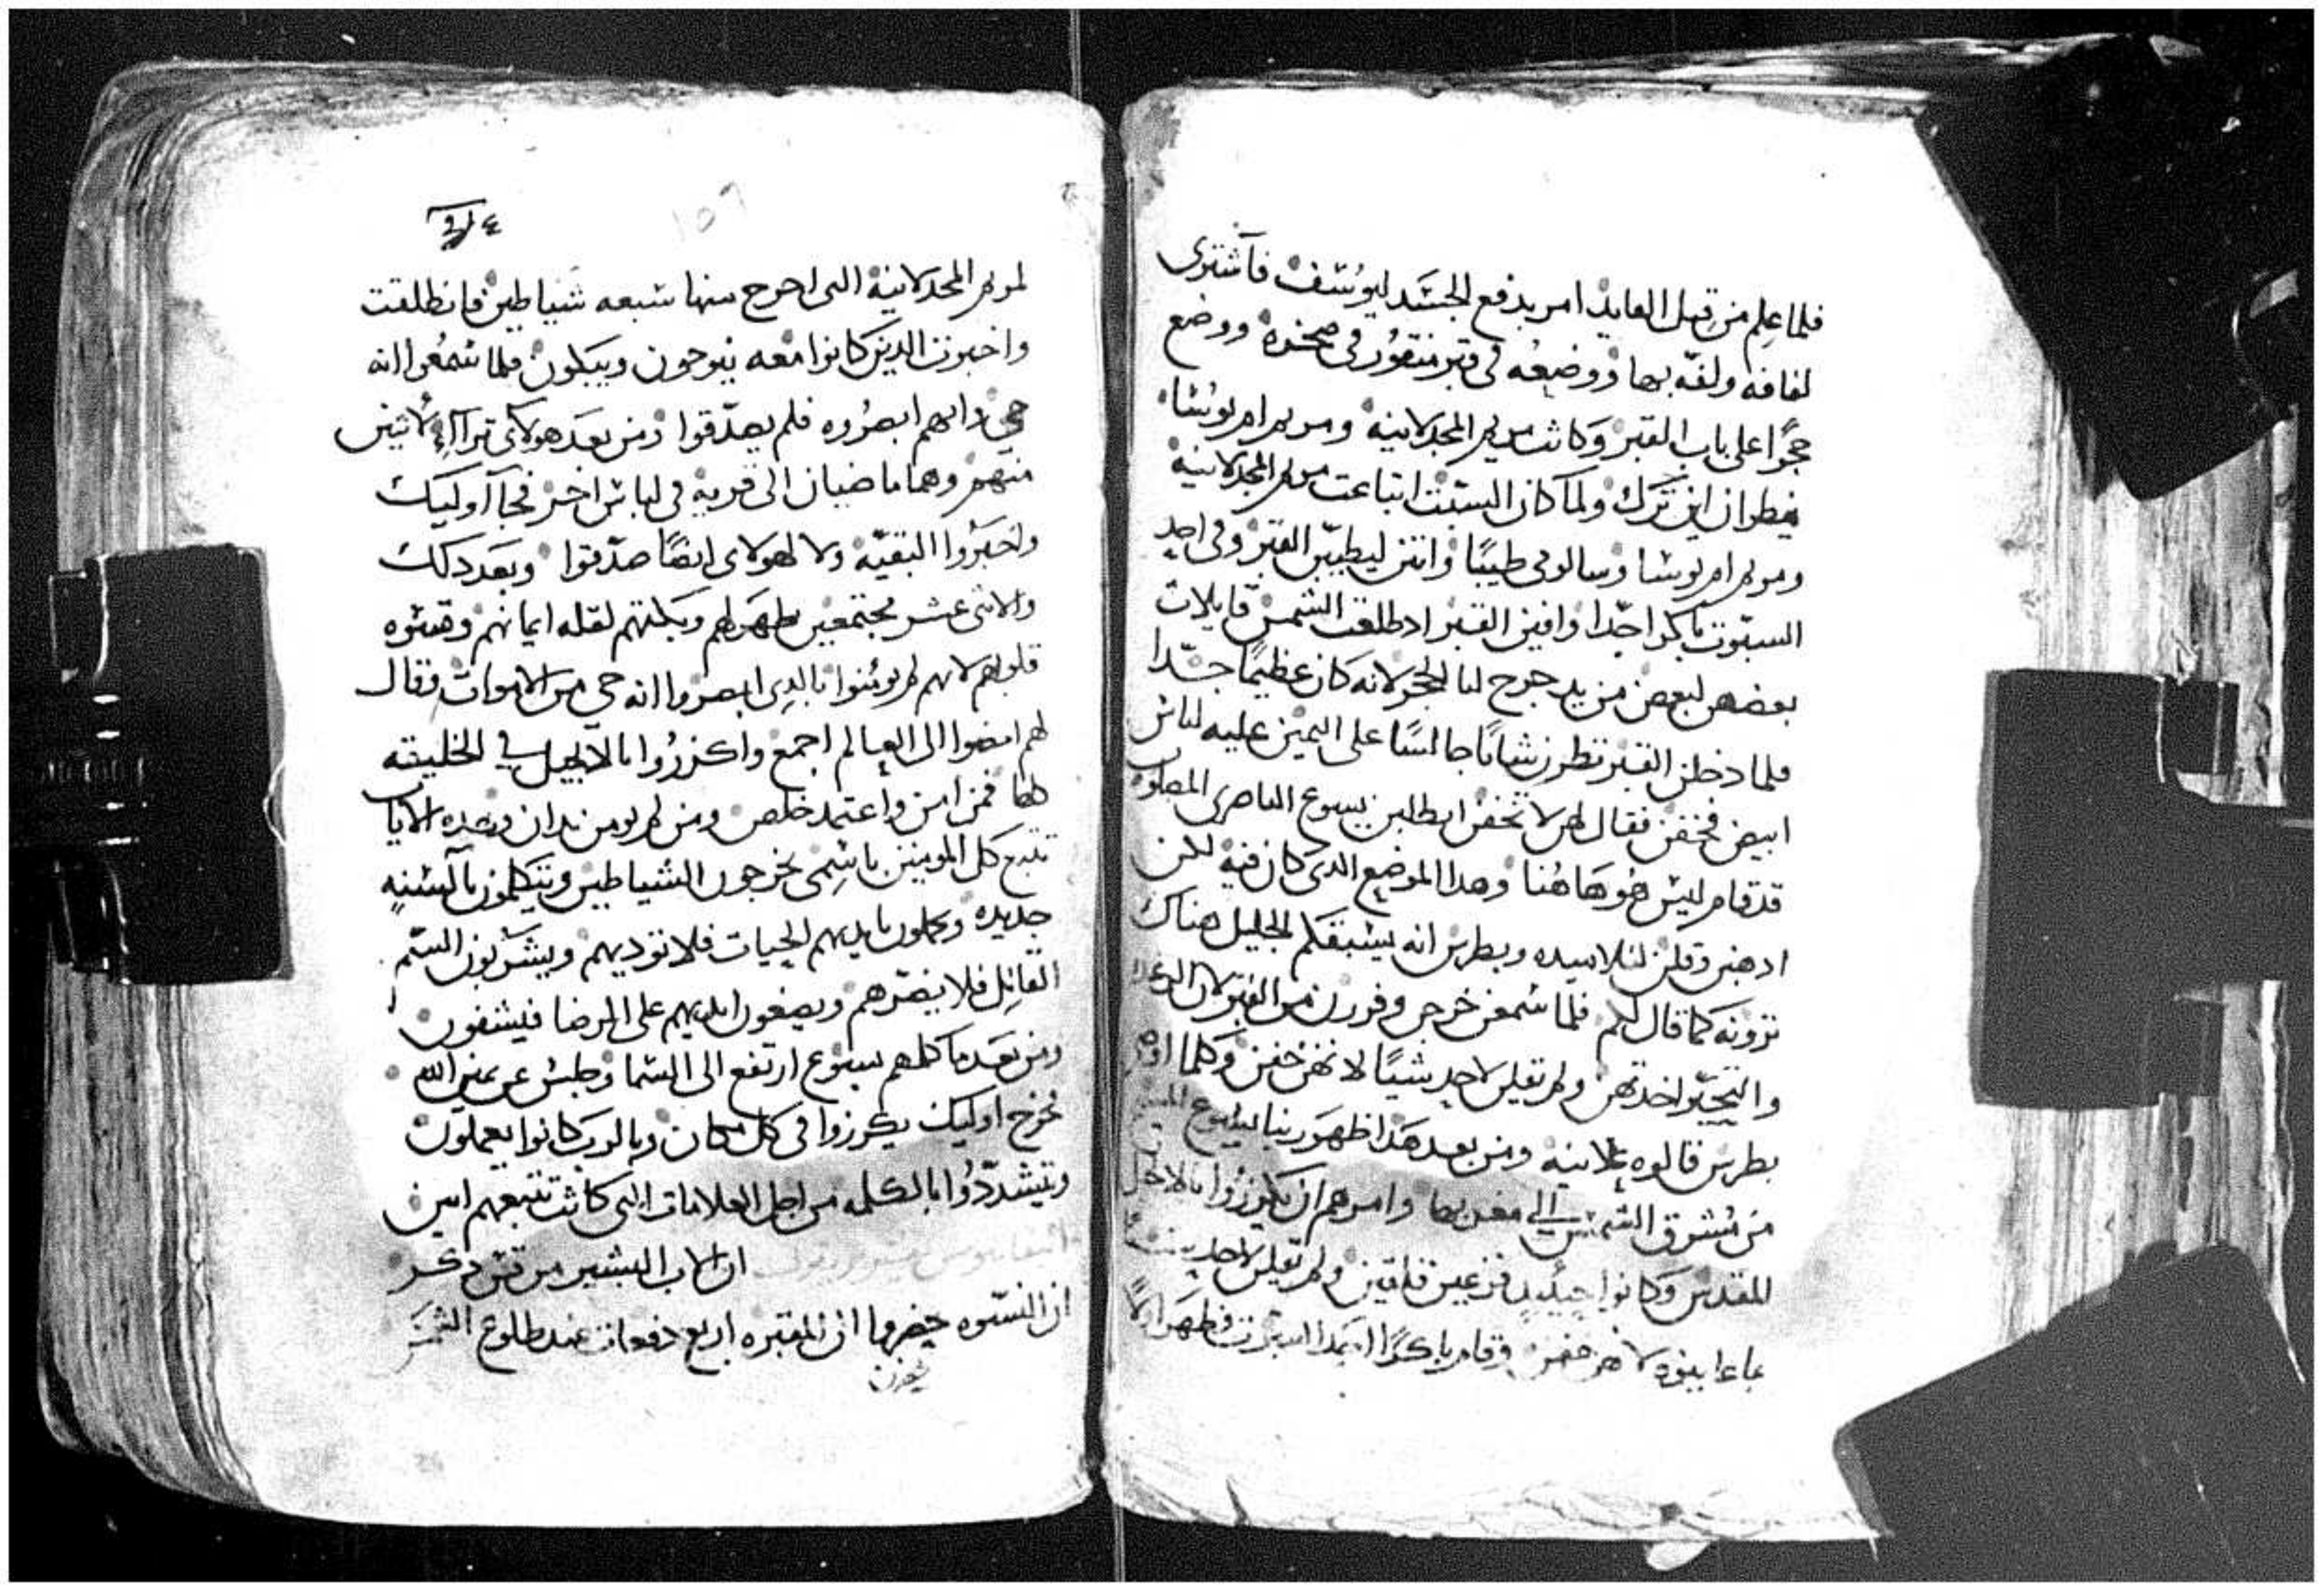 فلما علم من قبل القايد امر بدفع الجسد ليوسف فاشترى
لفافه ولفه بها ووضعه فى قبر منقور فى صخره ووضع
حجرا على باب القبر وكانت مريم المجدلانيه ومريم ام يوسا
ينظران اين ترك ولما كان السبت ابتاعت مريم المجدلانيه
ومريم ام يوسا وسالومى طيبا واتين ليطيبن القبر وفى احد
السبوت باكرا جدا وافين القبر اد طلعت الشمس قايلات
بعضهن لبعض من يدحرج لنا الحجر لانه كان عظيما جدا
فلما دخلن القبر نظرن شابا جالسا على اليمين عليه لباس
ابيض فخفن فقال لهن لا تخفن ايطلبن يسوع الناصرى المصلوب
قد قام ليس هو هاهنا وهدا الموضع الدى كان فيه لكن
ادهبن وقلن لتلاميده وبطرس انه يسبقكم الجليل هناك
ترونه كما قال لكم فلما سمعن خرجن وفررن من القبر لان الرعده
والتحير اخدتهن ولم تقلن لاحد شيا لانهن خفن وكلما
بطرس قالوه علانيه ومن بعد هدا ظهر ربنا يسوع المسيح
من مشرق الشمس الى مغربها وامرهم ان يكرزوا
المقدس وكانوا حينيد فزعين قلقين ولم تقلن لاحد
بما عاينوه لانهن خفن وقام باكرا السبوت فظهر اولا
٣١٤
١٥٦
لمريم المجدلانيه التى اخرج منها سبعه شياطين فانطلقت
واخبرت الدين كانوا معه ينوحون ويبكون فلما سمعوا انه
حى وانهم ابصروه فلم يصدقوا ومن بعد هولاى تراآا لاثنين
منهم وهما ماضيان الى قريه فى لباس اخر فجاآ اوليك
واخبروا البقيه ولا لهولاى ايضا صدقوا وبعد دلك
والاثنى عشر مجتمعين ظهر لهم وبكتهم لقله ايمانهم وقسوه
قلوبهم لانهم لم يومنوا بالدى ابصروا انه حى من الاموات وقال
لهم امضوا الى العالم اجمع واكرزوا بالانجيل فى الخليقه
كلها فمن امن واعتمد خلص ومن لم يومن يدان وهده الايات
تتبع كل المومنين باسمى يخرجون الشياطين ويتكلمون بآلسنه
جديده ويحملون بايديهم الحيات فلا توديهم ويشربون السم
القاتل فلا يضرهم ويضعون ايديهم على المرضا فيشفون
ومن بعد ما كلمهم يسوع ارتفع الى السما وجلس عن يمين الله
فخرج اوليك يكرزوا فى كل مكان وبالرب كانوا يعملون
ويتشددوا بالكلمه من اجل العلامات التى كانت تتبعهم امين
ان الاب البشير مرقس دكر
ان النسوه حضروا الى المقبره اربع دفعات عند طلوع الشمس